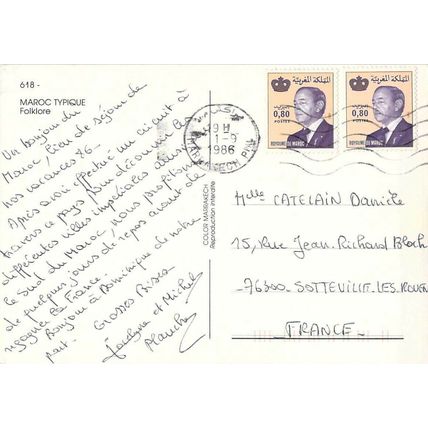 618 -
MAROC TYPIQUE
Folklore
Un bonjour du
Maroc, lieu de séjour de
nos vacances 86.
Après avoir effectué un circuit à
travers le pays pour découvrir les
différentes villes impériales dans
le Sud du Maroc, nous profitons
de quelques jours de repos avant de
regagner la France.
Bonjour à Dominique de notre
part.
Grosses Bises
Jocelyne et Michel
Planche
COLOR MARRAKECH
Reproduction interdite
19 H
1-9
1986
المملكة المغربية
0,80
POSTES
ROYAUME DU MAROC
المملكة المغربية
0,80
POSTES
ROYAUME DU MAROC
Melle CATELAIN Danièle
15, Rue Jean-Richard Bloch
76300 SOTTEVILLE-LES-ROUEN
FRANCE